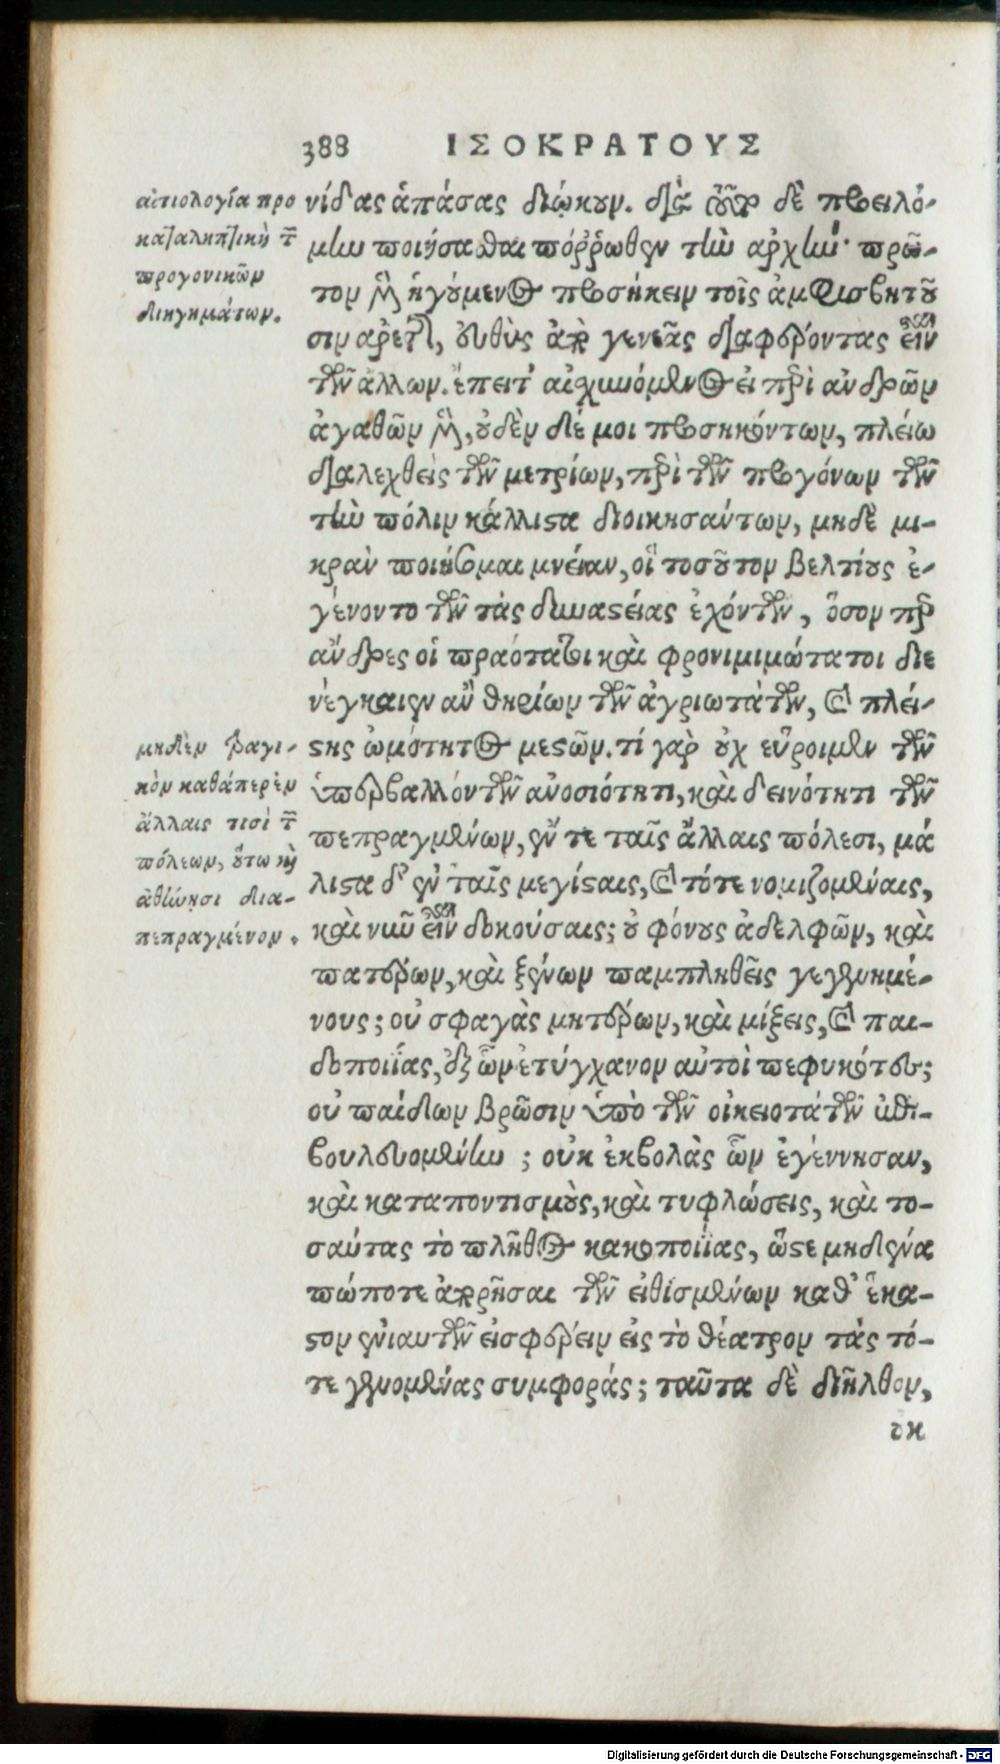 388 ΙΣΟΚΡΑΤΟΥΣ
αἰτιολογία προ
καταληπτικὴ τ̃
προγονικῶν
διηγημάτων.
νίδας ἁπάσας διῴκουν. διὰ τοῦτο δὲ προειλό-
μην ποιήσασθαι πόῤῥωθεν τὴν ἀρχὴν· πρῶ-
τον μὲν ἡγούμενος προσήκειν τοῖς ἀμφισβητοῦ
σιν ἀρετῆς, εὐθὺς ἀπὸ γενεᾶς διαφέροντας εἶναι
τῶν ἄλλων. ἔπειτ' αἰσχυνόμενος εἰ περὶ ἀνδρῶν
ἀγαθῶν μὲν, οὐδὲν δέ μοι προσηκόντων, πλείω
διαλεχθεὶς τῶν μετρίων, περὶ τῶν προγόνων τῶν
τὴν πόλιν κάλλιστα διοικησάντων, μηδὲ μι-
κρὰν ποιήσομαι μνείαν, οἳ τοσοῦτον βελτίους ἐ-
γένοντο τῶν τὰς δυναστείας ἐχόντων, ὅσον περ
ἄνδρες οἱ πραότατοι καὶ φρονιμιμώτατοι διε
νέγκαιεν ἂν θηρίων τῶν ἀγριωτάτων, καὶ πλεί-
στης ὠμότητος μεστῶν. τί γὰρ οὐχ εὕροιμεν τῶν
ὑπερβαλλόντων ἀνοσιότητι, καὶ δεινότητι τῶν
πεπραγμένων, ἔν τε ταῖς ἄλλαις πόλεσι, μά
λιστα δ' ἐν ταῖς μεγίσταις, καὶ τότε νομιζομέναις,
καὶ νῦν εἶναι δοκούσαις; οὐ φόνους ἀδελφῶν, καὶ
πατέρων, καὶ ξένων παμπληθεῖς γεγενημέ-
νους; οὐ σφαγὰς μητέρων, καὶ μίξεις, καὶ παι-
δοποιΐας, ἐξ ὧν ἐτύγχανον αὐτοὶ πεφυκότες;
οὐ παίδων βρῶσιν ὑπὸ τῶν οἰκειοτάτων ἐπι-
βουλευομένην; οὐκ ἐκβολὰς ὧν ἐγέννησαν,
καὶ καταποντισμοὺς, καὶ τυφλώσεις, καὶ το-
σαύτας τὸ πλῆθος κακοποιΐας, ὥστε μηδένα
πώποτε ἀπορῆσαι τῶν εἰθισμένων καθ' ἕκα-
στον ἐνιαυτῶν εἰσφέρειν εἰς τὸ θέατρον τὰς τό-
τε γενομένας συμφοράς; ταῦτα δὲ διῆλθον,
οὐκ
μηδὲν τραγι-
κὸν καθάπερ ἐν
ἄλλαις τισὶ τ̃
πόλεων, οὕτω καὶ
ἀθήνησι δια-
πεπραγμένον.
Digitalisierung gefördert durch die Deutsche Forschungsgemeinschaft - DFG